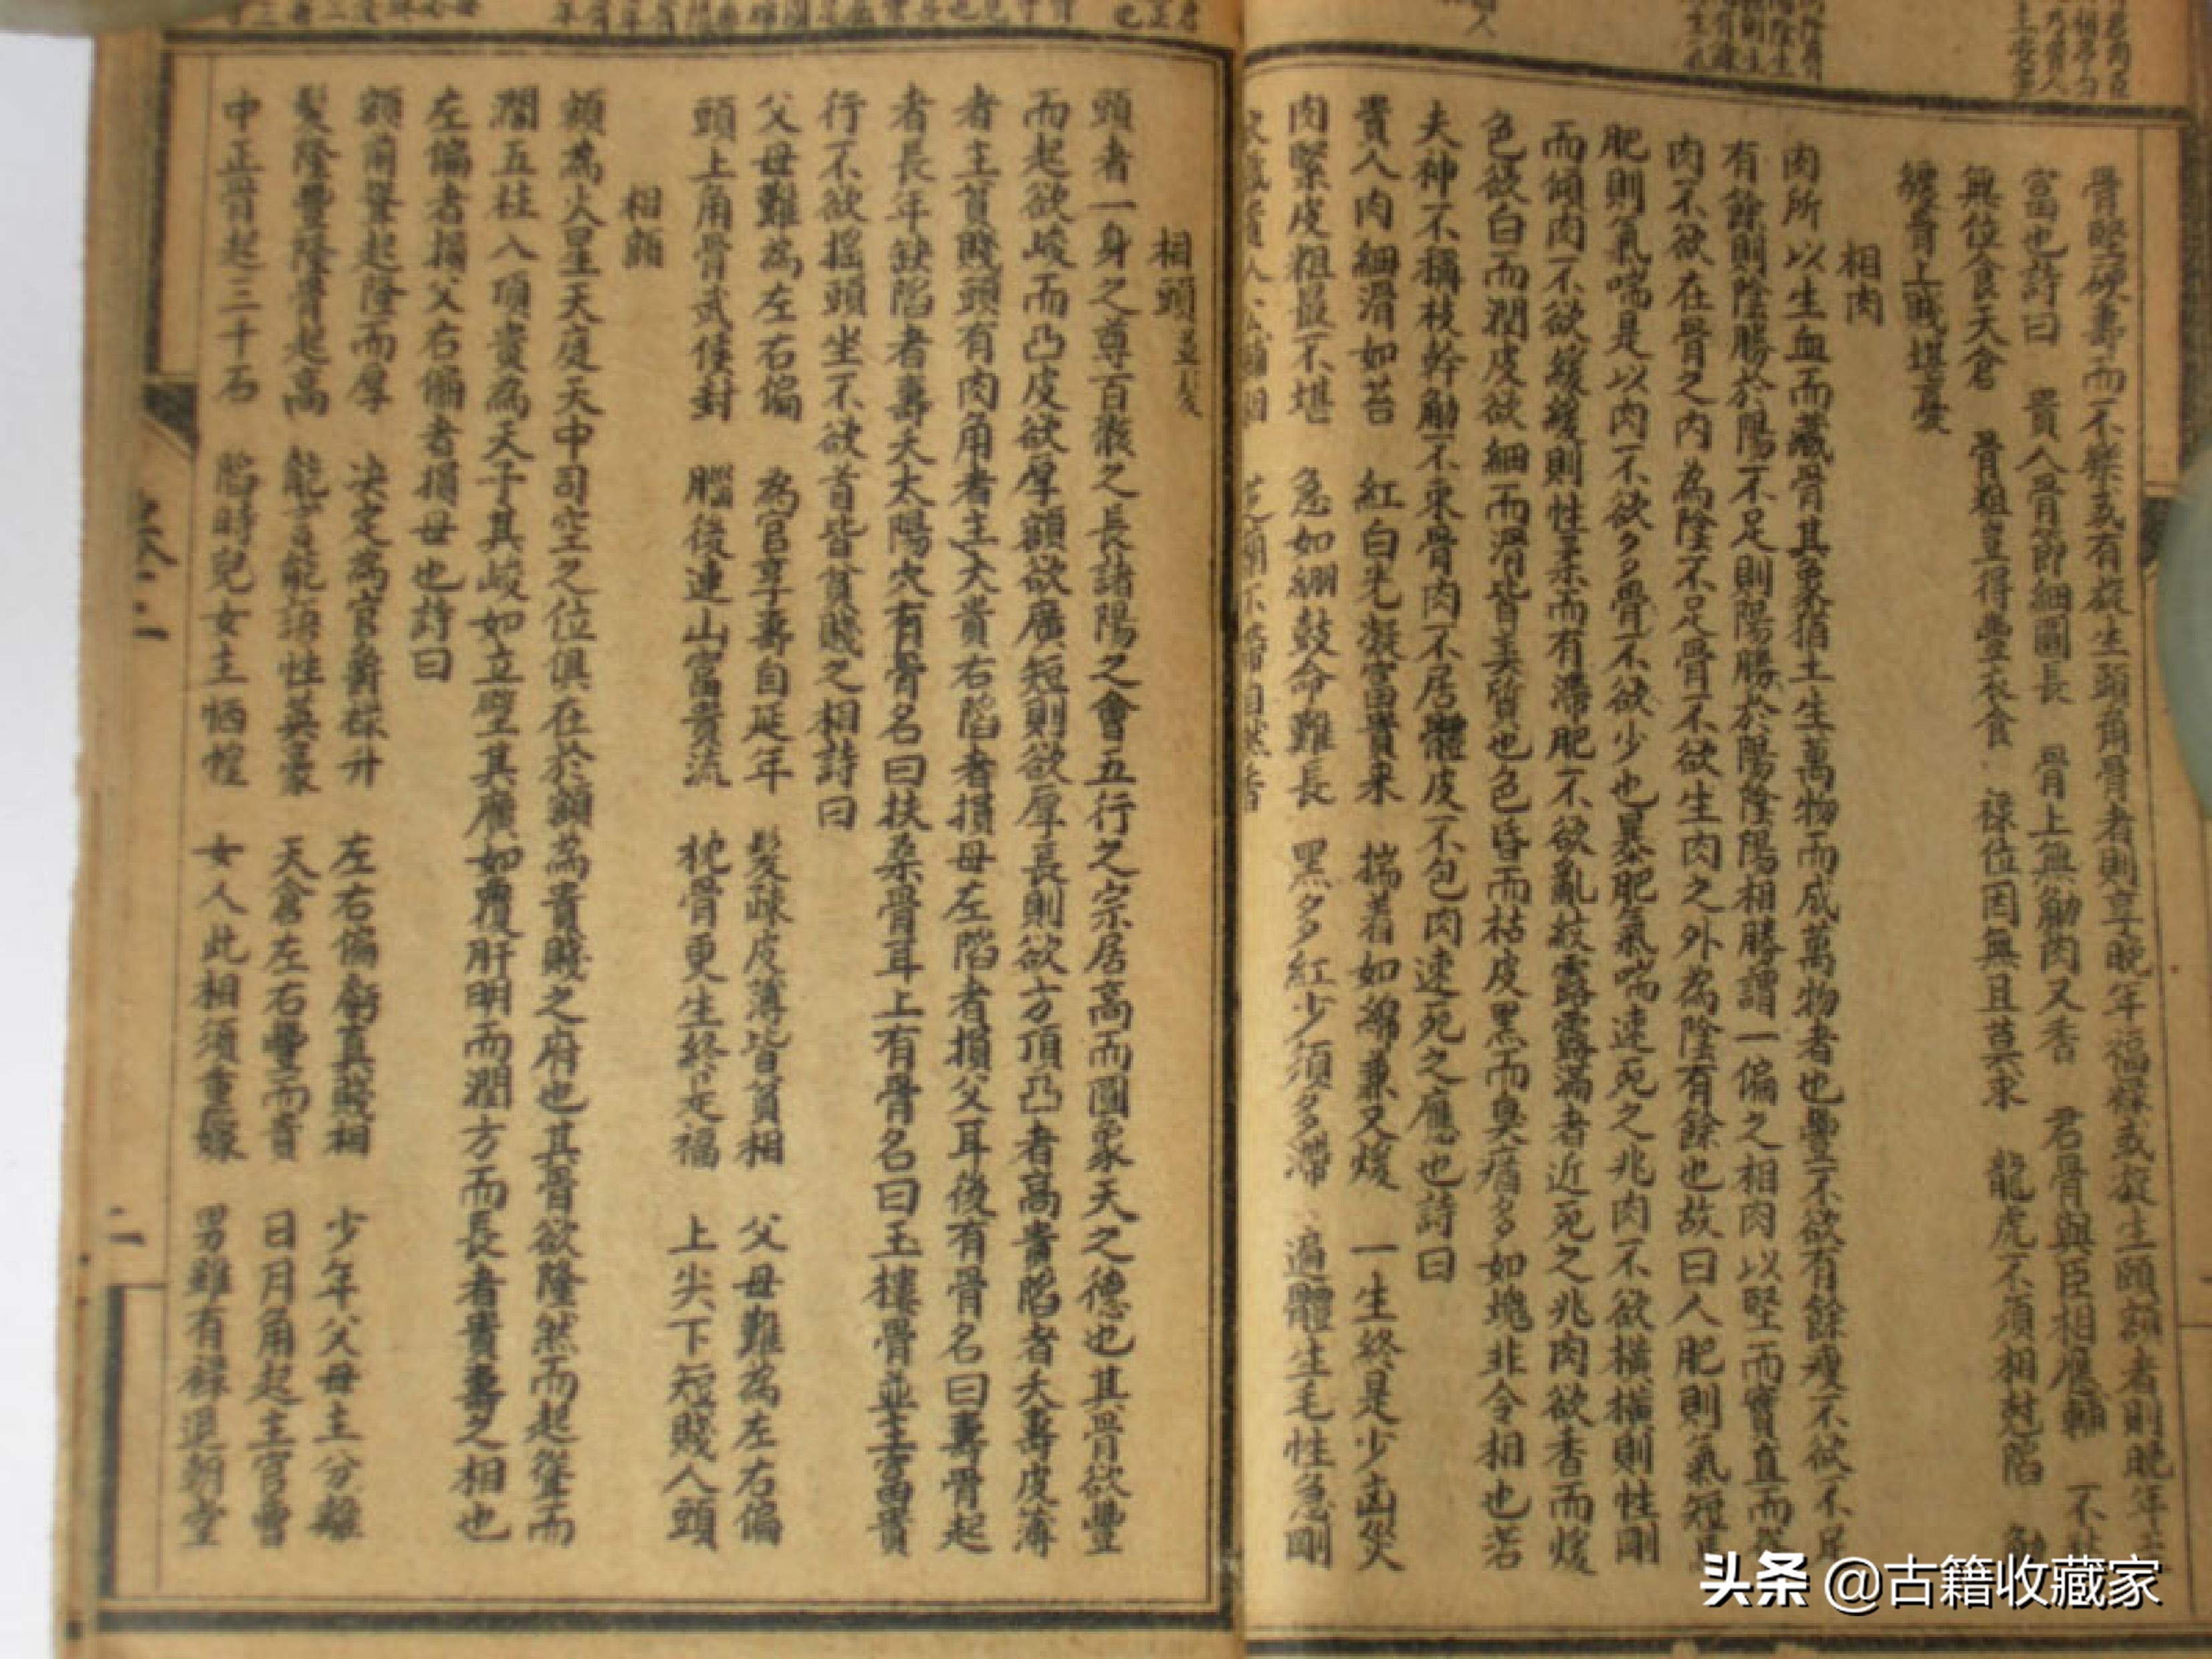 骨堅硬壽而不樂或有旋生頭角骨者則享晚年福祿或旋生頤額者則晚年
富也詩曰 貴人骨節細圓長 骨上無觔肉又香 君骨與臣相應輔 不
無位食天倉 骨粗豈得豐衣食 祿位因無且莫求 龍虎不須相尅陷
纏骨上賤堪憂
相肉
肉所以生血而藏骨其象猶土生萬物而成萬物者也豐不欲有餘瘦不欲不足
有餘則陰勝於陽不足則陽勝於陰陰陽相勝謂一偏之相肉以堅而實直而
肉不欲在骨之內為陰不足骨不欲生肉之外為陰有餘也故曰人肥則氣短
肥則氣喘是以肉不欲多骨不欲少也暴肥氣喘速死之兆肉不欲橫橫則性剛
而傾肉不欲緩緩則性柔而有滯肥不欲亂紋露露滿者近死之兆肉欲香而煖
色欲白而潤皮欲細而滑皆美質也色昏而枯皮黑而臭瘡多如塊非令相也若
夫神不稱枝幹觔不束骨肉不居體皮不包肉速死之應也詩曰
貴人肉細滑如苔 紅白光凝富貴來 揣着如綿兼又煖 一生終是少凶災
肉緊皮粗最不堪 急如綳鼓命難長 黑多紅少須多滯 遍體生毛性急剛
相頭並髮
頭者一身之尊百骸之長諸陽之會五行之宗居高而圓象天之德也其骨欲豐
而起欲峻而凸皮欲厚額欲廣短則欲厚長則欲方頂凸者高貴陷者夭壽皮薄
者主貧賤頭有肉角者主大貴右陷者損母左陷者損父耳後有骨名曰壽骨起
者長年缺陷者壽夭太陽穴有骨名曰扶桑骨耳上有骨名曰玉樓骨並主富貴
行不欲搖頭坐不欲首皆貧賤之相詩曰
父母難為左右偏 為官享壽自延年 髮疎皮薄皆貧相 父母難為左右偏
頭上角骨武侯封 腦後連山富貴流 枕骨更生終足福 上尖下短賤人頭
相額
額為火星天庭天中司空之位俱在於額為貴賤之府也其骨欲隆然而起聳而
濶五柱入頂貴為天子其峻如立壁其廣如覆肝明而潤方而長者貴壽之相也
左偏者損父右偏者損母也詩曰
額前聳起隆而厚 决定為官爵祿升 左右偏虧真賤相 少年父母主分離
髮隆豐隆骨起高 能言能語性英豪 天倉左右豐而貴 日月角起主官曹
中正骨起三千石 陷時兒女主恓惶 女人此相須重嫁 男雖有祿退朝堂
卷二
二
头条 @古籍收藏家